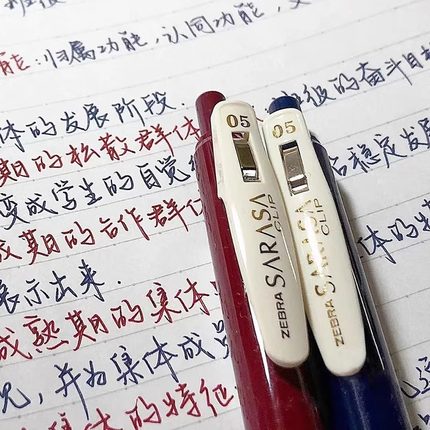 能:归属功能,认同功能,
体的发展阶段.
级的奋斗目
期的松散群体
变成学生的自觉
稳定发展
成期的合作群体
体的特
展示出来.
成熟期的集体
并为集体成员
集体的特征
05
ZEBRA SARASA CLIP
05
ZEBRA SARASA CLIP